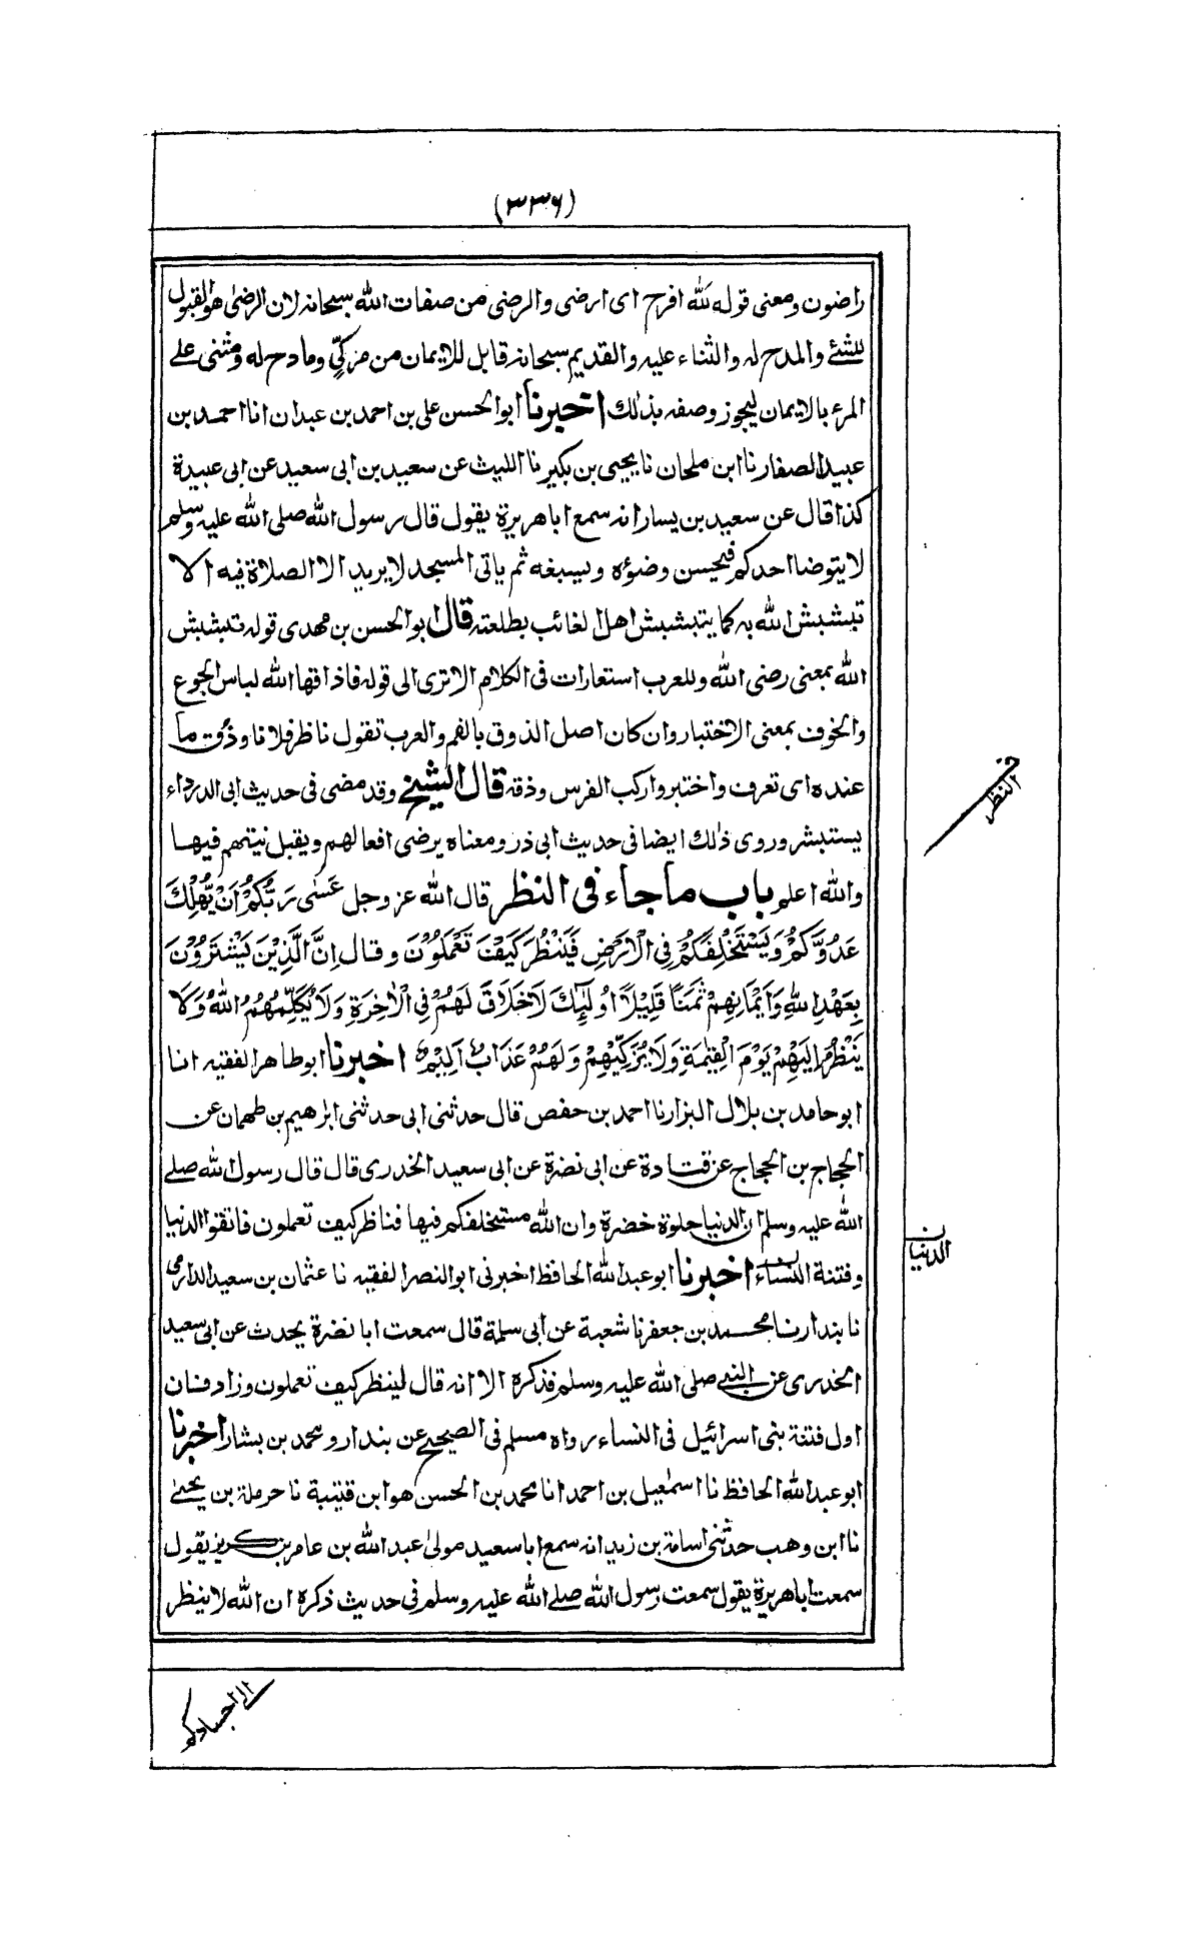 (٣٣٦)
راضون ومعنى قوله لله افرح اى ارضى والرضى من صفات الله سبحانه لان الرضى هو القبول
للشئ والمدح له والثناء عليه والقديم سبحانه قابل للايمان من مزكّي ومادح له ومثنى على
المرء بالايمان ليجوز وصفه بذلك اخبرنا ابو الحسن على بن احمد بن عبدان انا احمد بن
عبيد الصفار نا ابن ملحان نا يحيى بن بكير نا الليث عن سعيد بن ابى سعيد عن ابى عبيدة
كذا قال عن سعيد بن يسار انه سمع ابا هريرة يقول قال رسول الله صلى الله عليه وسلم
لا يتوضا احدكم فيحسن وضوءه ويسبغه ثم ياتى المسجد لا يريد الا الصلاة فيه الا
تبشبش الله به كما يتبشبش اهل الغائب بطلعته قال ابو الحسن بن مهدى قوله تبشبش
الله بمعنى رضى الله وللعرب استعارات فى الكلام الا ترى الى قوله فاذاقها الله لباس الجوع
والخوف بمعنى الاختبار وان كان اصل الذوق بالفم والعرب تقول ناظر فلانا وذق ما
عنده اى تعرف واختبر واركب الفرس وذقه قال الشيخ وقد مضى فى حديث ابى الدرداء
يستبشر وروى ذلك ايضا فى حديث ابى ذر ومعناه يرضى افعالهم ويقبل نيتهم فيها
والله اعلم باب ما جاء فى النظر قال الله عز وجل عَسٰى رَبُّكُمْ اَنْ يُّهْلِكَ
عَدُوَّكُمْ وَيَسْتَخْلِفَكُمْ فِى الْاَرْضِ فَيَنْظُرَ كَيْفَ تَعْمَلُوْنَ وقال اِنَّ الَّذِيْنَ يَشْتَرُوْنَ
بِعَهْدِ اللهِ وَاَيْمَانِهِمْ ثَمَنًا قَلِيْلًا اُولٰئِكَ لَاخَلَاقَ لَهُمْ فِى الْاٰخِرَةِ وَلَا يُكَلِّمُهُمُ اللهُ وَلَا
يَنْظُرُ اِلَيْهِمْ يَوْمَ الْقِيٰمَةِ وَلَا يُزَكِّيْهِمْ وَلَهُمْ عَذَابٌ اَلِيْمٌ اخبرنا ابو طاهر الفقيه انا
ابو حامد بن بلال البزار نا احمد بن حفص قال حدثنى ابى حدثنى ابرٰهيم بن طهمان عن
الحجاج بن الحجاج عن قتادة عن ابى نضرة عن ابى سعيد الخدرى قال قال رسول الله صلى
الله عليه وسلم ان الدنيا حلوة خضرة وان الله مستخلفكم فيها فناظر كيف تعملون فاتقوا الدنيا
وفتنة النساء اخبرنا ابو عبد الله الحافظ اخبرنى ابو النصر الفقيه نا عثمان بن سعيد الدارمى
نا بندار نا محمد بن جعفر نا شعبة عن ابى سلمة قال سمعت ابا نضرة يحدث عن ابى سعيد
الخدرى عن النبى صلى الله عليه وسلم فذكره الا انه قال لينظر كيف تعملون وزاد فان
اول فتنة بنى اسرائيل فى النساء رواه مسلم فى الصحيح عن بندار و محمد بن بشار اخبرنا
ابو عبد الله الحافظ نا اسمٰعيل بن احمد انا محمد بن الحسن هو ابن قتيبة نا حرملة بن يحيى
نا ابن وهب حدثنى اسامة بن زيد انه سمع ابا سعيد مولى عبد الله بن عامر بن كريز يقول
سمعت ابا هريرة يقول سمعت رسول الله صلى الله عليه وسلم فى حديث ذكره ان الله لا ينظر
النظر
الدنيا
الى اجسادكم